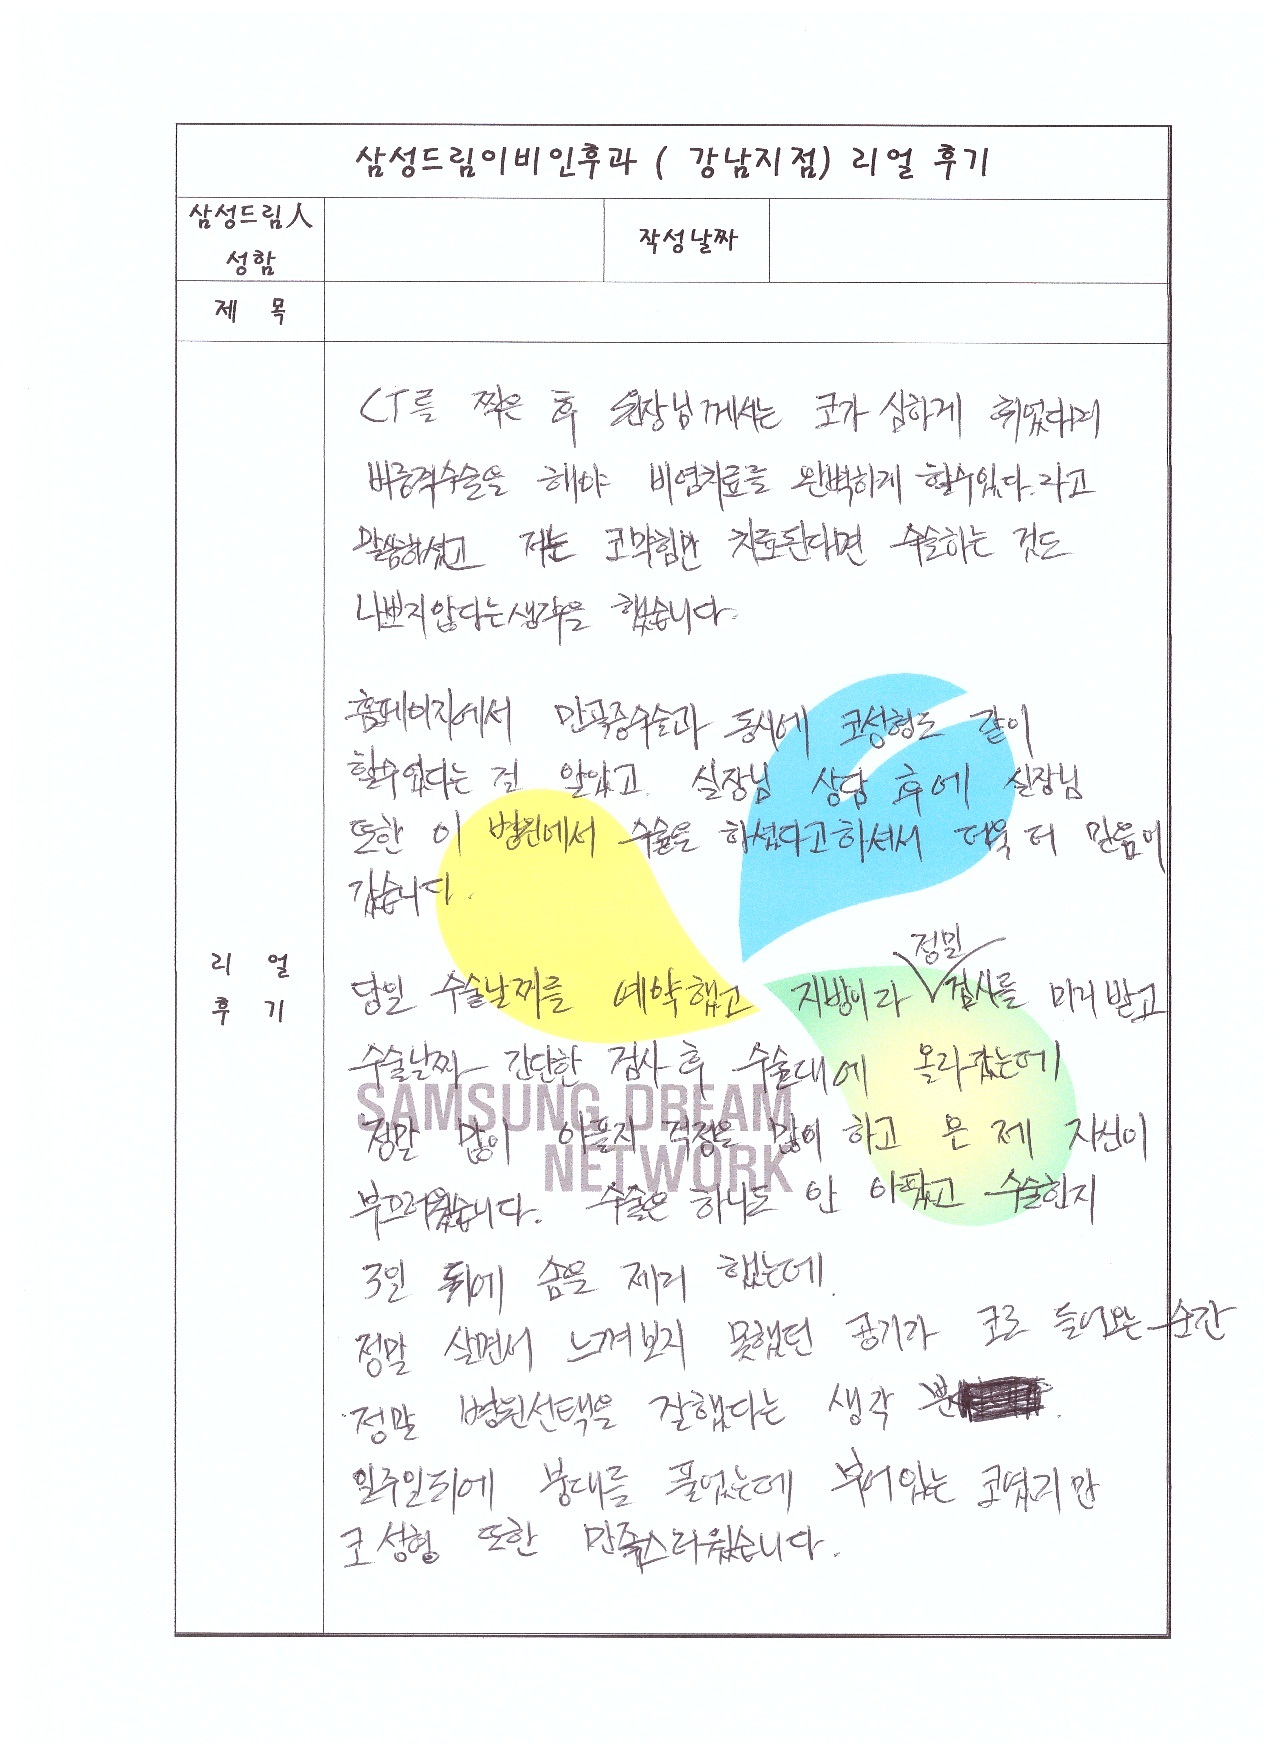 삼성드림이비인후과 ( 강남지점) 리얼 후기
삼성드림人
성함
작성날짜
제 목
CT를 찍은 후 원장님께서는 코가 심하게 휘었다며
비중격수술을 해야 비염치료를 완벽하게 할수있다.라고
말씀하셨고 저는 코막힘만 치료된다면 수술하는 것도
나쁘지않다는생각을 했습니다.
홈페이지에서 만곡증수술과 동시에 코성형도 같이
할수있다는 걸 알았고. 실장님 상담 후에 실장님
또한 이 병원에서 수술을 하셨다고하셔서 더욱 더 믿음이
갔습니다.
정밀
당일 수술날짜를 예약했고 지방이라 검사를 미리 받고
수술날짜 간단한 검사 후 수술대에 올라갔는데
SAMSUNG DREAM
정말 많이 아플지 걱정을 많이 하고 온 제 자신이
NETWORK
부끄러웠습니다. 수술은 하나도 안 아팠고 수술한지
3일 뒤에 솜을 제거 했는데.
정말 살면서 느껴보지 못했던 공기가 코로 들어오는 순간
정말 병원선택을 잘했다는 생각 뿐
일주일뒤에 붕대를 풀었는데 부어있는 코였지만
코 성형 또한 만족스러웠습니다.
리 얼
후 기